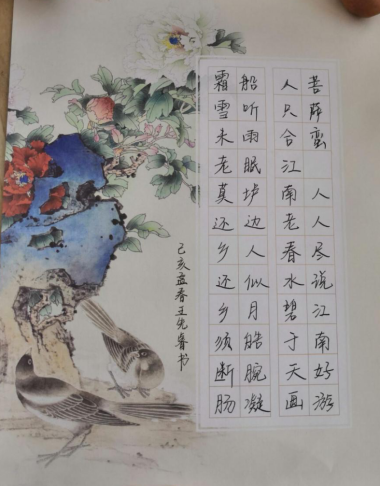 菩薛蛮 人人尽说江南好游
人只合江南老春水碧于天画
船听雨眠垆边人似月皓腕凝
霜雪未老莫还乡还乡须断肠
己亥孟春王先书